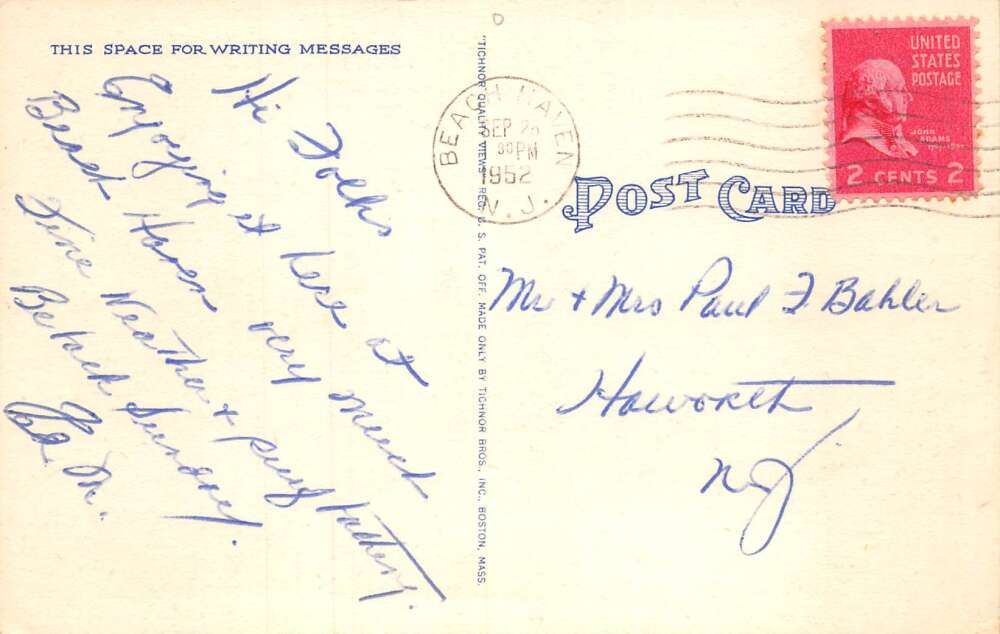 THIS SPACE FOR WRITING MESSAGES
Hi Folks
Enjoying it here at
Beach Haven very much
Fine Weather +
Be back Sunday.
Ed. M.
"TICHNOR QUALITY VIEWS," REG. U. S. PAT. OFF. MADE ONLY BY TICHNOR BROS., INC., BOSTON, MASS.
BEACH HAVEN
SEP
30 PM
1952
N. J.
UNITED
STATES
POSTAGE
JOHN
ADAMS
2 CENTS 2
POST CARD
Mr + Mrs Paul F Bahler
Haworth,
NJ